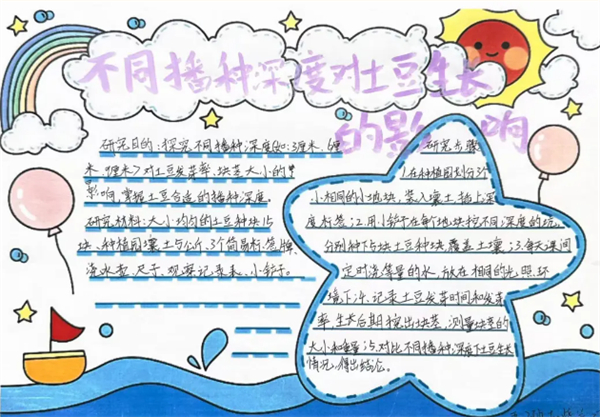 不同播种深度对土豆生长
的影响
研究目的:探究不同播种深度(如:3厘米、6厘
米、9厘米)对土豆发芽率,块茎大小的
影响,掌握土豆合适的播种深度。
研究材料:大小均匀的土豆种块15
块、种植园壤土5公斤、3个简易标签牌、
浇水壶、尺子、观察记录表、小铲子。
研究步骤
1在种植园划分3个
小相同的小地块,装入壤土,插上深
度标签;2.用小铲子在每个地块挖不同深度的坑,
分别种下5块土豆种块覆盖土壤;3.每天课间
定时浇等量的水,放在相同的光照环
境下;4.记录土豆发芽时间和发芽
率,生长后期挖出块茎,测量块茎的
大小和重量;5.对比不同播种深度下土豆生长
情况,得出结论。